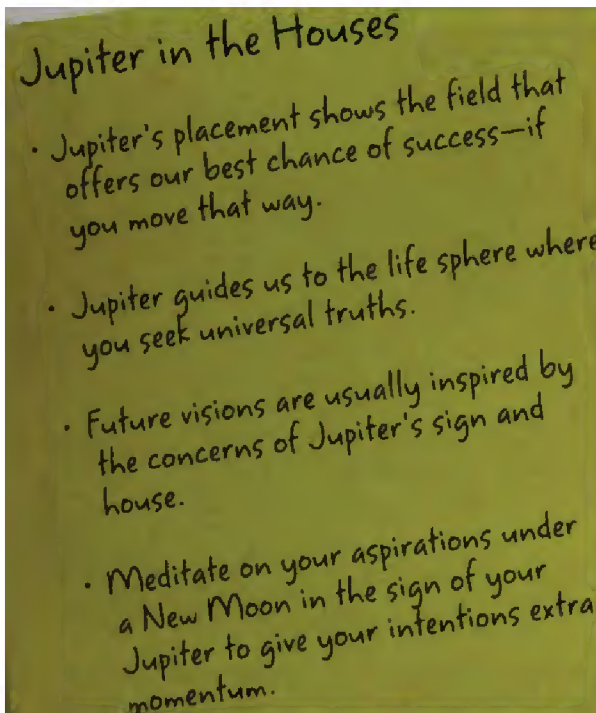 Jupiter in the Houses
· Jupiter's placement shows the field that
offers our best chance of success—if
you move that way.
· Jupiter guides us to the life sphere where
you seek universal truths.
· Future visions are usually inspired by
the concerns of Jupiter's sign and
house.
· Meditate on your aspirations under
a New Moon in the sign of your
Jupiter to give your intentions extra
momentum.